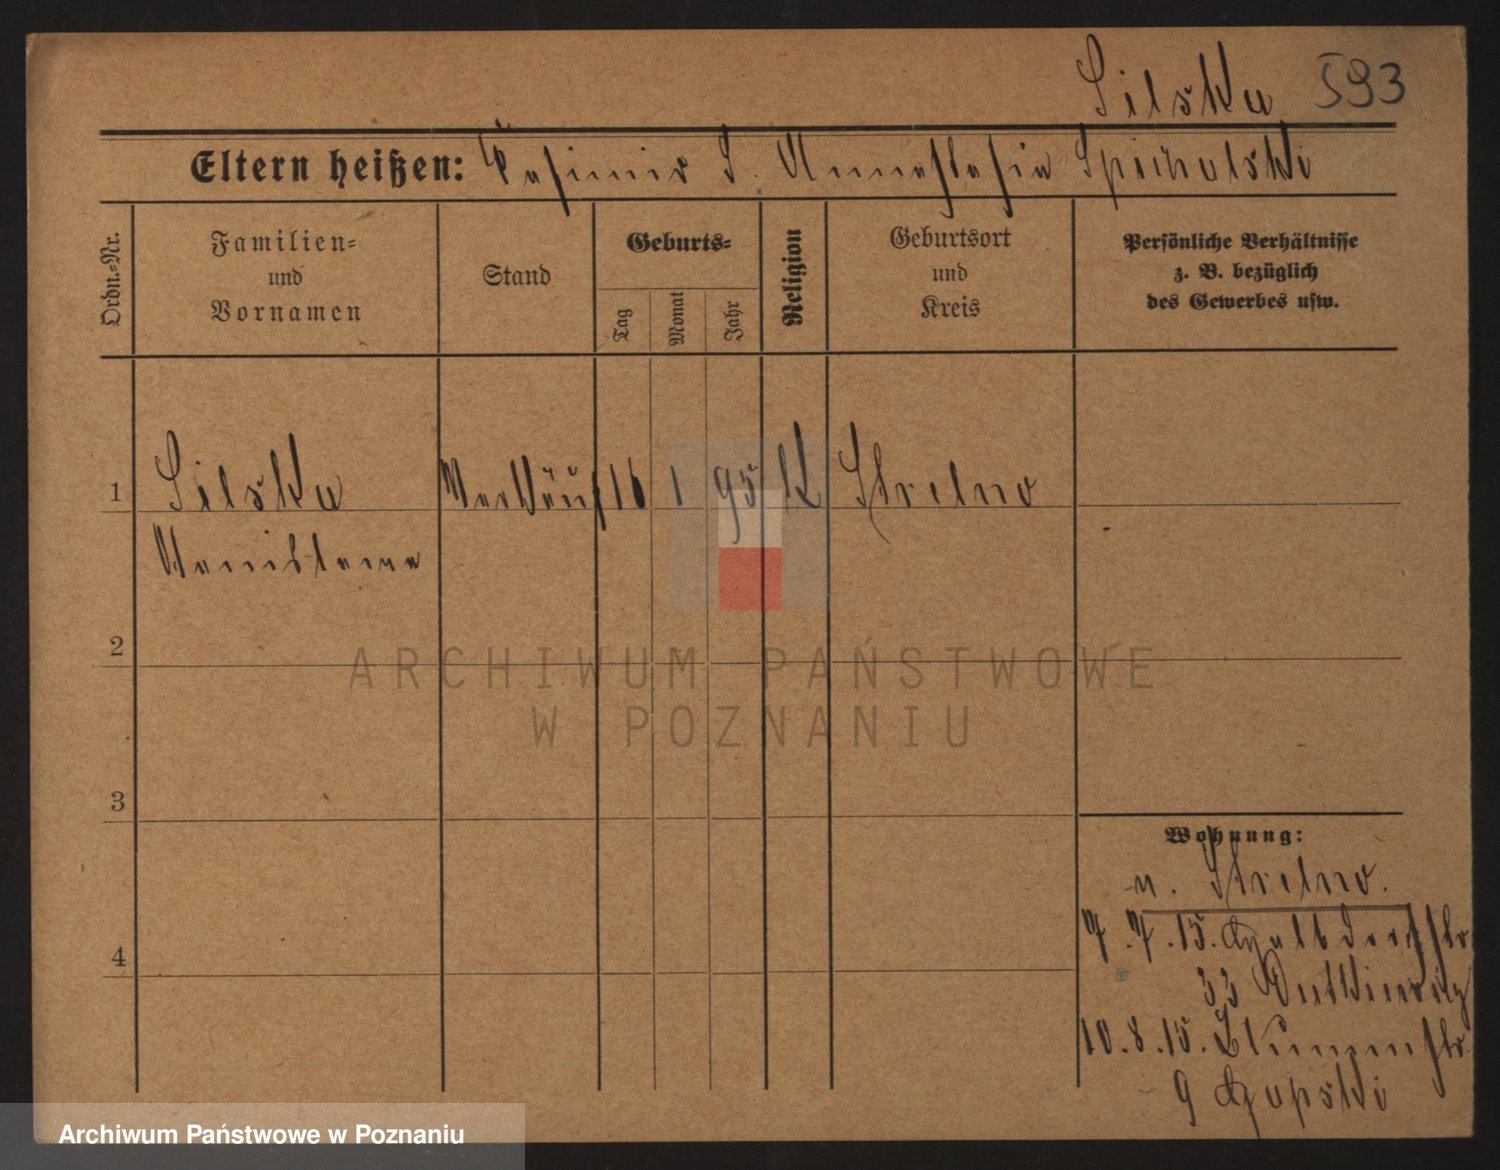 Silska 593
Eltern heißen: Kasimir S. Annastasia Spicholski
Ordn.-Nr.
Familien-
und
Vornamen
Stand
Geburts-
Tag
Monat
Jahr
Religion
Geburtsort
und
Kreis
Persönliche Verhältnisse
z. B. bezüglich
des Gewerbes usw.
1 Silska Verkäuf 16 1 95 K Strelno
Stanislawa
2
3
4
ARCHIWUM PAŃSTWOWE
W POZNANIU
Wohnung:
v. Strelno.
7.7.15. Halbdorfstr
33
10.8.15. Blumenstr.
9 Czapski
Archiwum Państwowe w Poznaniu